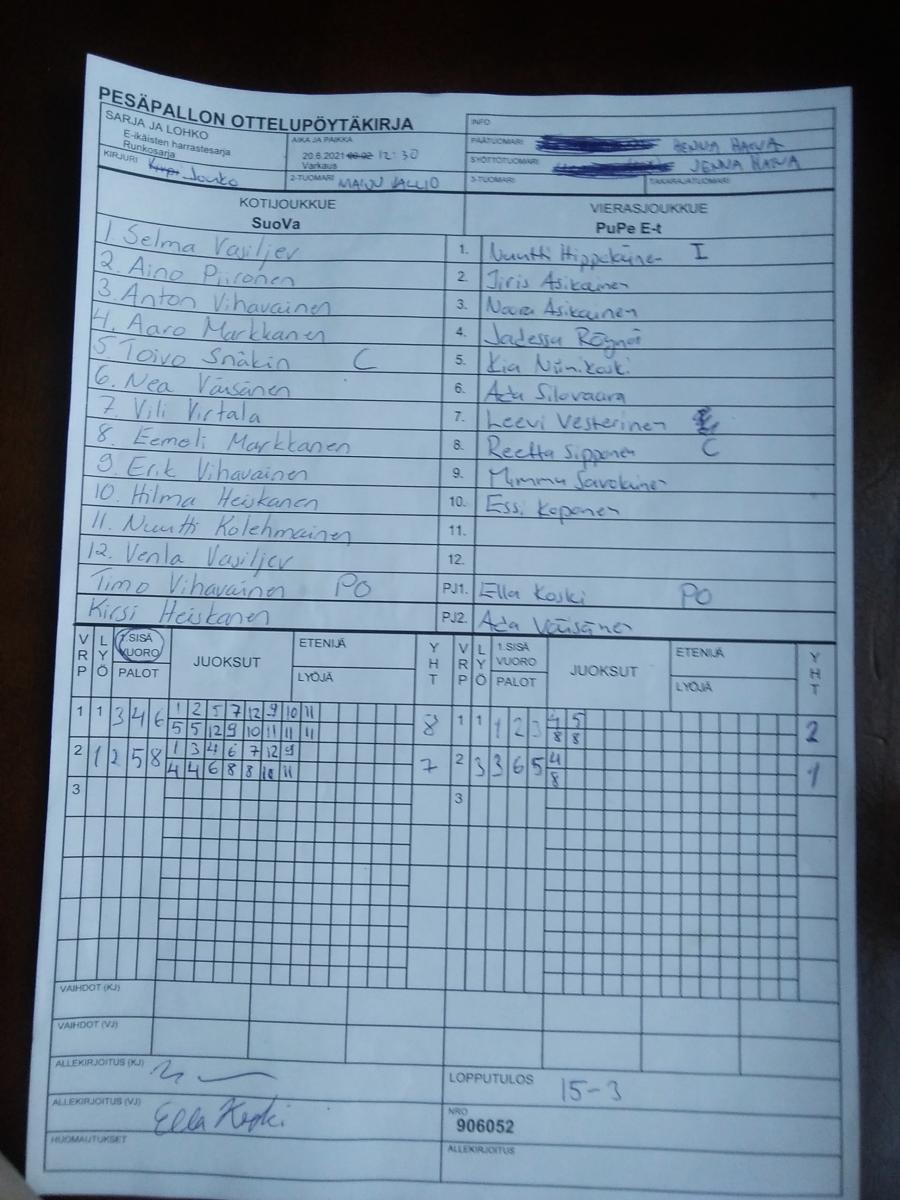 PESÄPALLON OTTELUPÖYTÄKIRJA
SARJA JA LOHKO
E-ikäisten harrastesarja
Runkosarja
AIKA JA PAIKKA
20.6.2021 12:30
Varkaus
INFO
PÄÄTUOMARI HENNA HARVA
SYÖTTÖTUOMARI JENNA HARVA
KIRJURI Jouko
2-TUOMARI MANU KALLIO
3-TUOMARI
TAKARAJATUOMARI
KOTIJOUKKUE
SuoVa
VIERASJOUKKUE
PuPe E-t
1. Selma Vasiljev
1. Nuutti Hippeläinen I
2. Aino Piironen
2. Jiris Asikainen
3. Anton Vihavainen
3. Noora Asikainen
4. Aaro Markkanen
4. Jadessa
5 Toivo Snäkin C
5. Kia Niinikoski
6. Nea Väisänen
6. Ada Silovaara
7. Vili Virtala
7. Leevi Vesterinen
8. Eemeli Markkanen
8. Reetta Sipponen C
9. Erik Vihavainen
9. Mimmu Savolainen
10. Hilma Heiskanen
10. Essi Koponen
11. Nuutti Kolehmainen
11.
12. Venla Vasiljev
12.
Timo Vihavainen PO
PJ1. Ella Koski PO
Kirsi Heiskanen
PJ2. Ada Väisänen
VRP LYÖ 1.SISÄ VUORO PALOT JUOKSUT ETENIJÄ LYÖJÄ YHT
VRP LYÖ 1.SISÄ VUORO PALOT JUOKSUT ETENIJÄ LYÖJÄ YHT
1 1 3 4 6 1 2 5 7 12 9 10 11 8
5 5 12 9 10 11 11 11
1 1 1 2 3 4 5 2
8 8
2 1 2 5 8 1 3 4 6 7 12 9 7
4 4 6 8 8 10 11
2 3 3 6 5 4 1
8
3
3
VAIHDOT (KJ)
VAIHDOT (VJ)
ALLEKIRJOITUS (KJ)
LOPPUTULOS 15-3
ALLEKIRJOITUS (VJ) Ella Koski
NRO
906052
HUOMAUTUKSET
ALLEKIRJOITUS